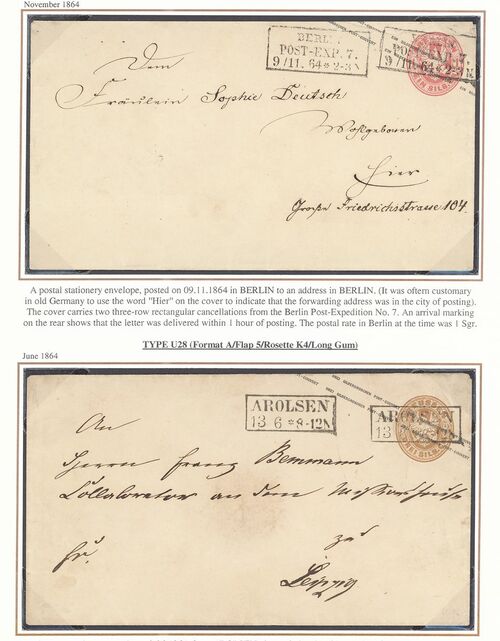 November 1864
BERLIN
POST-EXP. 7.
9/11. 64 * 2-3 N
POST-EXP. 7.
9/11. 64 * 2-3 N
EIN SILB.
Dem
Fräulein Sophie Deutsch
Wohlgeboren
Hier
Große Friedrichsstrasse 104.
A postal stationery envelope, posted on 09.11.1864 in BERLIN to an address in BERLIN. (It was oftern customary
in old Germany to use the word "Hier" on the cover to indicate that the forwarding address was in the city of posting).
The cover carries two three-row rectangular cancellations from the Berlin Post-Expedition No. 7. An arrival marking
on the rear shows that the letter was delivered within 1 hour of posting. The postal rate in Berlin at the time was 1 Sgr.
TYPE U28 (Format A/Flap 5/Rosette K4/Long Gum)
June 1864
AROLSEN
13 6 * 8-12N
AROLSEN
13 8-12N
An
Herrn Franz Bemmann
Collaborator an dem
zu
Leipzig
fr.